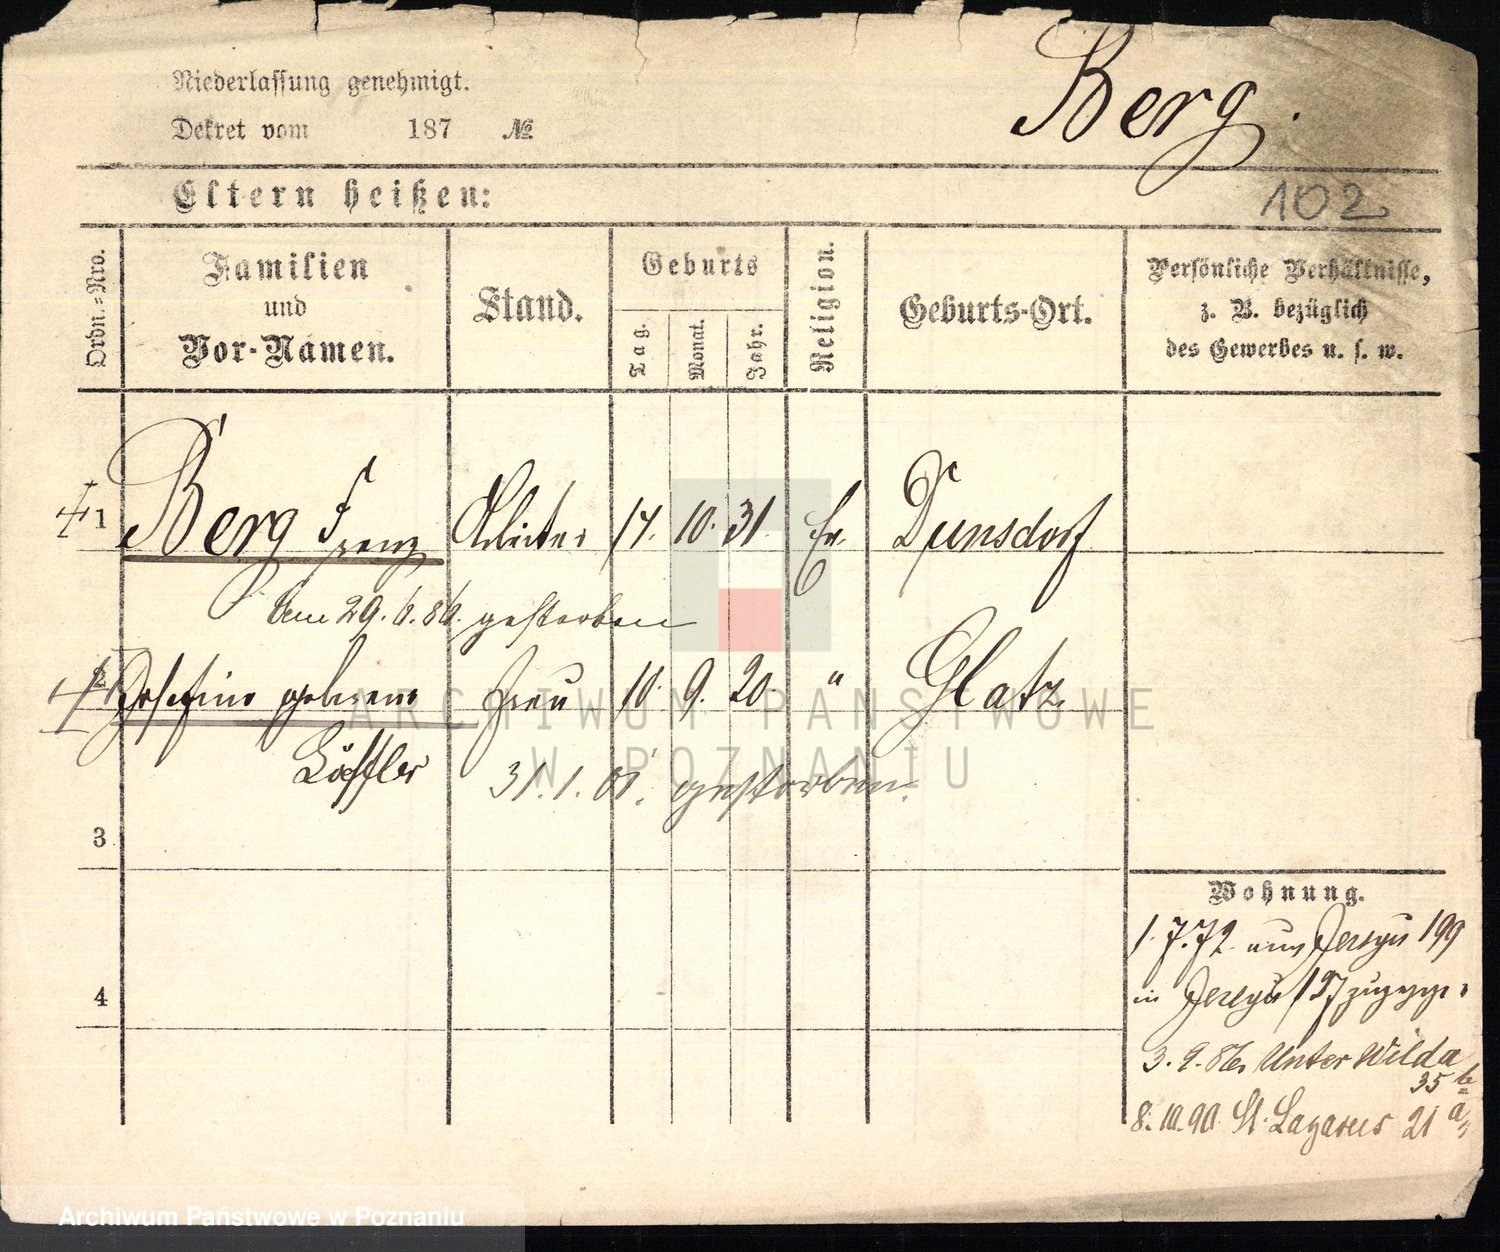 Niederlassung genehmigt.
Dekret vom 187 №
Berg.
Eltern heißen:
102
Ordn.=Nro.
Familien
und
Vor-Namen.
Stand.
Geburts
Tag.
Monat.
Jahr.
Religion.
Geburts-Ort.
Persönliche Verhältnisse,
z. B. bezüglich
des Gewerbes u. s. w.
1 Berg Franz Arbeiter 17. 10. 31. Ev. Dunsdorf
am 29.6.86. gestorben
2 Josefine geborene Frau 10. 9. 20. " Glatz
Löffler 31.1. gestorben.
3
4
Wohnung.
1.7.72. aus Jersyu 199
in Jersyu 127
3.9.86. Unter Wilda
35 b
8.10.90. St. Lazarus 21 a
ARCHIWUM PAŃSTWOWE
W POZNANIU
Archiwum Państwowe w Poznaniu